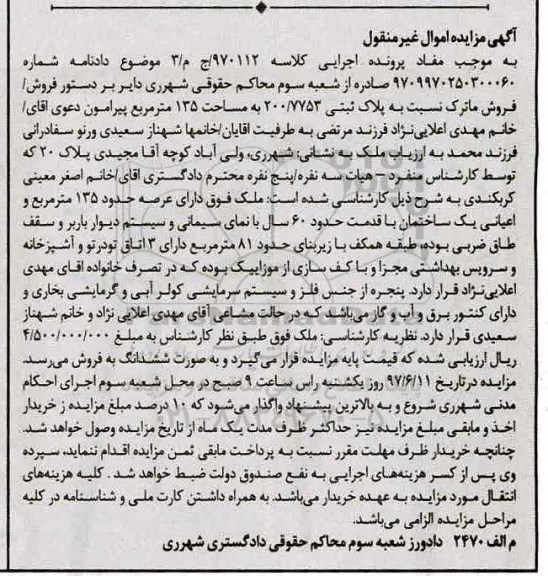 آگهی مزایده اموال غیر منقول
به موجب مفاد پرونده اجرایی کلاسه ۹۷۰۱۱۲/ج م/۳ موضوع دادنامه شماره
۹۷۰۹۹۷۰۲۵۰۳۰۰۰۶۰ صادره از شعبه سوم محاکم حقوقی شهرری دایر بر دستور فروش/
فروش ماترک نسبت به پلاک ثبتی ۲۰۰/۷۷۵۳ به مساحت ۱۳۵ مترمربع پیرامون دعوی اقای/
خانم مهدی اعلایی‌نژاد فرزند مرتضی به طرفیت اقایان/خانمها شهناز سعیدی ورنو سفادرانی
فرزند محمد به ارزیابی ملک به نشانی: شهرری، ولی آباد کوچه آقا مجیدی پلاک ۲۰ که
توسط کارشناس منفرد – هیات سه نفره/پنج نفره محترم دادگستری اقای/خانم اصغر معینی
کربکندی به شرح ذیل کارشناسی شده است: ملک فوق دارای عرصه حدود ۱۳۵ مترمربع و
اعیانی یک ساختمان با قدمت حدود ۶۰ سال با نمای سیمانی و سیستم دیوار باربر و سقف
طاق ضربی بوده، طبقه همکف با زیربنای حدود ۸۱ مترمربع دارای ۳ اتاق تودرتو و آشپزخانه
و سرویس بهداشتی مجزا و با کف سازی از موزاییک بوده که در تصرف خانواده اقای مهدی
اعلایی‌نژاد قرار دارد. پنجره از جنس فلز و سیستم سرمایشی کولر آبی و گرمایشی بخاری و
دارای کنتور برق و آب و گاز می‌باشد که در حالت مشاعی آقای مهدی اعلایی نژاد و خانم شهناز
سعیدی قرار دارد. نظریه کارشناسی: ملک فوق طبق نظر کارشناس به مبلغ ۴/۵۰۰/۰۰۰/۰۰۰
ریال ارزیابی شده که قیمت پایه مزایده قرار می‌گیرد و به صورت ششدانگ به فروش می‌رسد.
مزایده در تاریخ ۹۷/۶/۱۱ روز یکشنبه راس ساعت ۹ صبح در محل شعبه سوم اجرای احکام
مدنی شهرری شروع و به بالاترین پیشنهاد واگذار می‌شود که ۱۰ درصد مبلغ مزایده ز خریدار
اخذ و مابقی مبلغ مزایده نیز حداکثر ظرف مدت یک ماه از تاریخ مزایده وصول خواهد شد.
چنانچه خریدار ظرف مهلت مقرر نسبت به پرداخت مابقی ثمن مزایده اقدام ننماید، سپرده
وی پس از کسر هزینه‌های اجرایی به نفع صندوق دولت ضبط خواهد شد . کلیه هزینه‌های
انتقال مورد مزایده به عهده خریدار می‌باشد. به همراه داشتن کارت ملی و شناسنامه در کلیه
مراحل مزایده الزامی می‌باشد.
م الف ۲۴۷۰ دادورز شعبه سوم محاکم حقوقی دادگستری شهرری